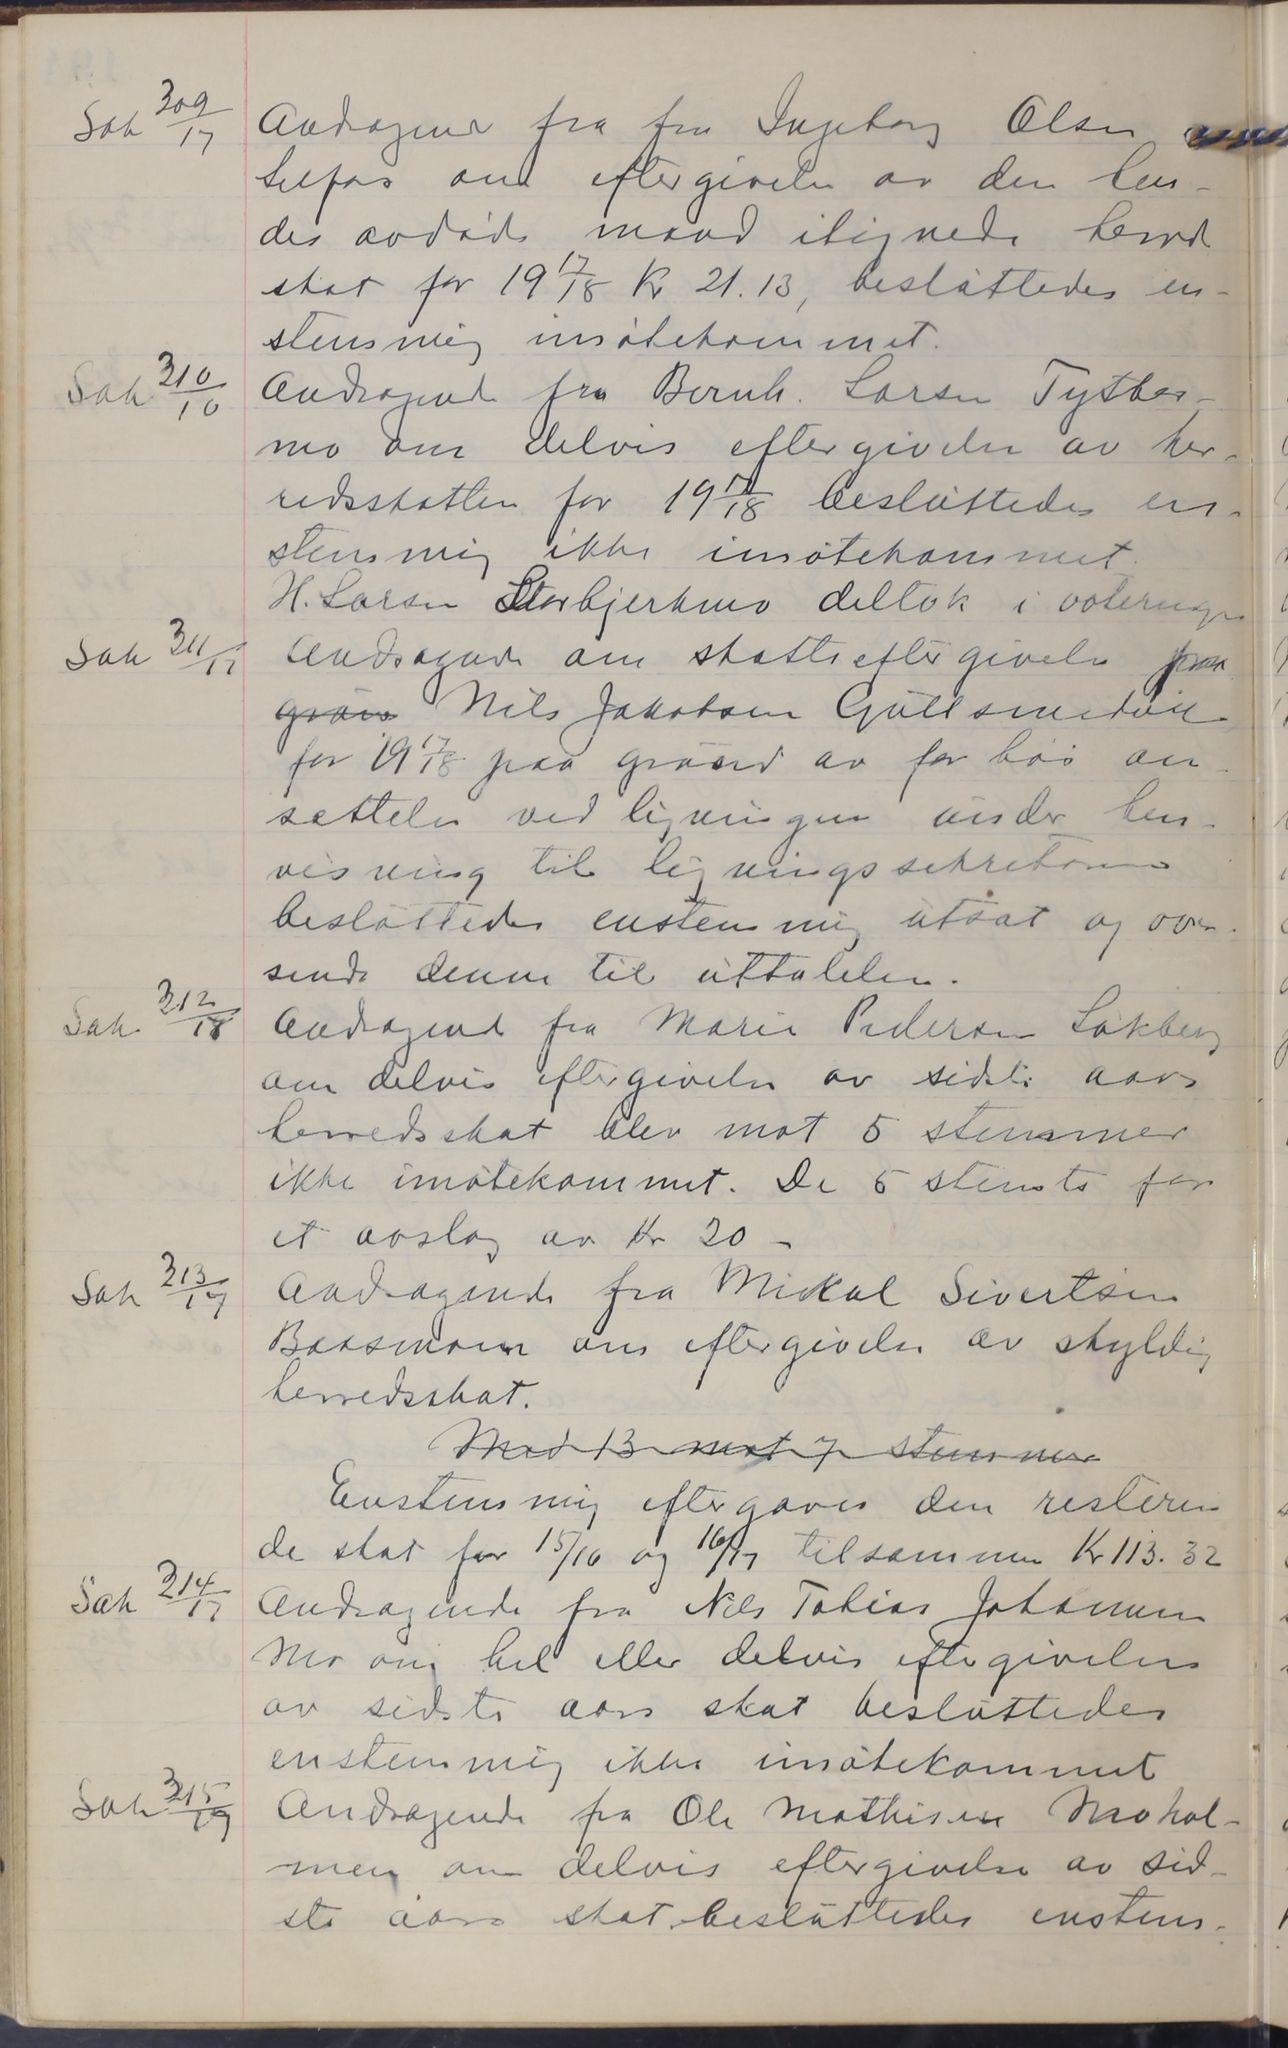 Sak 309/17 Andragende fra fru Ingeborg Olsen
Selfors om eftergivelse av den hen-
des avdøde mand ilignede herred
skat for 19 17/18 Kr 21.13, besluttedes en-
stemmig imøtekommet.
Sak 310/10 Andragende fra Bernh. Larsen Tytbær-
mo om delvis eftergivelse av her-
redsskatten for 19 17/18 besluttedes en-
stemmig ikke imøtekommet.
H. Larsen Storbjerkmo deltok i voteringen
Sak 311/17 Andragende om skatteeftergivelse paa
grun Nils Jakobsen Gullsmedvik
for 19 17/18 paa grund av for høi an-
sættelse ved ligningen under hen-
visning til ligningssekretæren
besluttedes enstemmig utsat og over-
sende denne til uttalelse.
Sak 312/18 Andragende fra Marie Pedersen Løkberg
om delvis eftergivelse av sidste aars
herredsskat blev mot 5 stemmer
ikke imøtekommet. De 5 stemte for
et avslag av Kr 20 –
Sak 313/17 Andragende fra Mikal Sivertsen
Baasmoen om eftergivelse av skyldig
herredsskat.
Med 13 mot 7 stemmer
Enstemmig eftergaves den resteren
de skat for 15/16 og 16/17 tilsammen Kr 113.32
Sak 314/17 Andragende fra Nils Tobias Johansen
Mo om hel eller delvis eftergivelse
av sidste aars skat besluttedes
enstemmig ikke imøtekommet
Sak 315/19 Andragende fra Ole Mathisen Mohol-
men om delvis eftergivelse av sid-
ste aars skat besluttedes enstem-